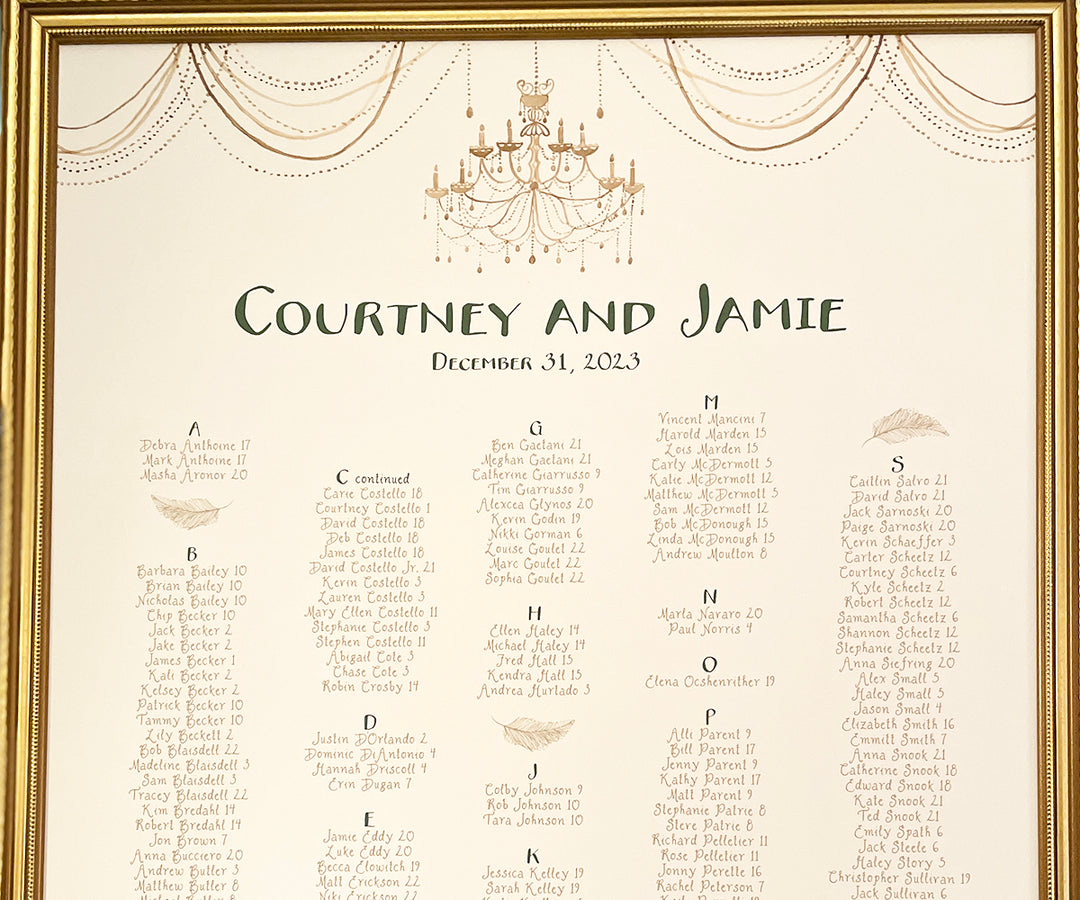 Courtney and Jamie
December 31, 2023
A
Debra Anthoine 17
Mark Anthoine 17
Masha Aronor 20
B
Barbara Bailey 10
Brian Bailey 10
Nicholas Bailey 10
Chip Becker 10
Jack Becker 2
Jake Becker 2
James Becker 1
Kali Becker 2
Kelsey Becker 2
Patrick Becker 10
Tammy Becker 10
Lily Beckett 2
Bob Blaisdell 22
Madeline Blaisdell 3
Sam Blaisdell 3
Tracey Blaisdell 22
Kim Bredahl 14
Robert Bredahl 14
Jon Brown 7
Anna Bucciero 20
Andrew Butler 3
Matthew Butler 8
C continued
Carie Costello 18
Courtney Costello 1
David Costello 18
Deb Costello 18
James Costello 18
David Costello Jr. 21
Kevin Costello 3
Lauren Costello 3
Mary Ellen Costello 11
Stephanie Costello 3
Stephen Costello 11
Abigail Cote 3
Chase Cote 3
Robin Crosby 14
D
Justin D'Orlando 2
Dominic DiAntonio 4
Hannah Driscoll 4
Erin Dugan 7
E
Jamie Eddy 20
Luke Eddy 20
Becca Elowitch 19
Matt Erickson 22
Niki Erickson 22
G
Ben Gaetani 21
Meghan Gaetani 21
Catherine Giarrusso 9
Tim Giarrusso 9
Alexcea Glynos 20
Kevin Godin 19
Nikki Gorman 6
Louise Goulet 22
Marc Goulet 22
Sophia Goulet 22
H
Ellen Haley 14
Michael Haley 14
Fred Hall 15
Kendra Hall 15
Andrea Hurtado 3
J
Colby Johnson 9
Rob Johnson 10
Tara Johnson 10
K
Jessica Kelley 19
Sarah Kelley 19
M
Vincent Mancini 7
Harold Marden 15
Lois Marden 15
Carly McDermott 5
Katie McDermott 12
Matthew McDermott 5
Sam McDermott 12
Bob McDonough 15
Linda McDonough 15
Andrew Moulton 8
N
Marla Nararo 20
Paul Norris 4
O
Elena Ocshenrither 19
P
Alli Parent 9
Bill Parent 17
Jenny Parent 9
Kathy Parent 17
Matt Parent 9
Stephanie Patrie 8
Steve Patrie 8
Richard Pelletier 11
Rose Pelletier 11
Jonny Perette 16
Rachel Peterson 7
S
Caitlin Salvo 21
David Salvo 21
Jack Sarnoski 20
Paige Sarnoski 20
Kerin Schaeffer 3
Carter Scheetz 12
Courtney Scheetz 6
Kyle Scheetz 2
Robert Scheetz 12
Samantha Scheetz 6
Shannon Scheetz 12
Stephanie Scheetz 12
Anna Siefring 20
Alex Small 5
Haley Small 5
Jason Small 4
Elizabeth Smith 16
Emmitt Smith 7
Anna Snook 21
Catherine Snook 18
Edward Snook 18
Kate Snook 21
Ted Snook 21
Emily Spath 6
Jack Steele 6
Haley Story 5
Christopher Sullivan 19
Jack Sullivan 6